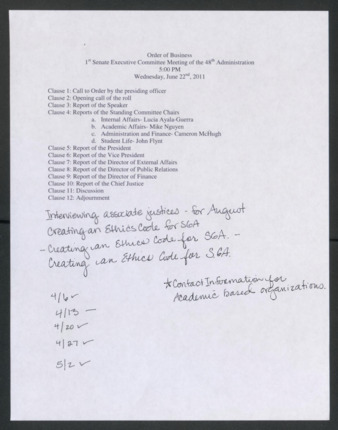 Order of Business
1st Senate Executive Committee Meeting of the 48th Administration
5:00 PM
Wednesday, June 22nd, 2011
Clause 1: Call to Order by the presiding officer
Clause 2: Opening call of the roll
Clause 3: Report of the Speaker
Clause 4: Reports of the Standing Committee Chairs
a. Internal Affairs- Lucia Ayala-Guerra
b. Academic Affairs- Mike Nguyen
c. Administration and Finance- Cameron McHugh
d. Student Life- John Flynt
Clause 5: Report of the President
Clause 6: Report of the Vice President
Clause 7: Report of the Director of External Affairs
Clause 8: Report of the Director of Public Relations
Clause 9: Report of the Director of Finance
Clause 10: Report of the Chief Justice
Clause 11: Discussion
Clause 12: Adjournment
Interviewing associate justices - for August
Creating an Ethics Code for SGA
- Creating an Ethics Code for SGA. -
Creating an Ethics Code for SGA.
*Contact Information for
Academic based organizations.
4/6 ✓
4/13 —
4/20 ✓
4/27 ✓
5/2 ✓